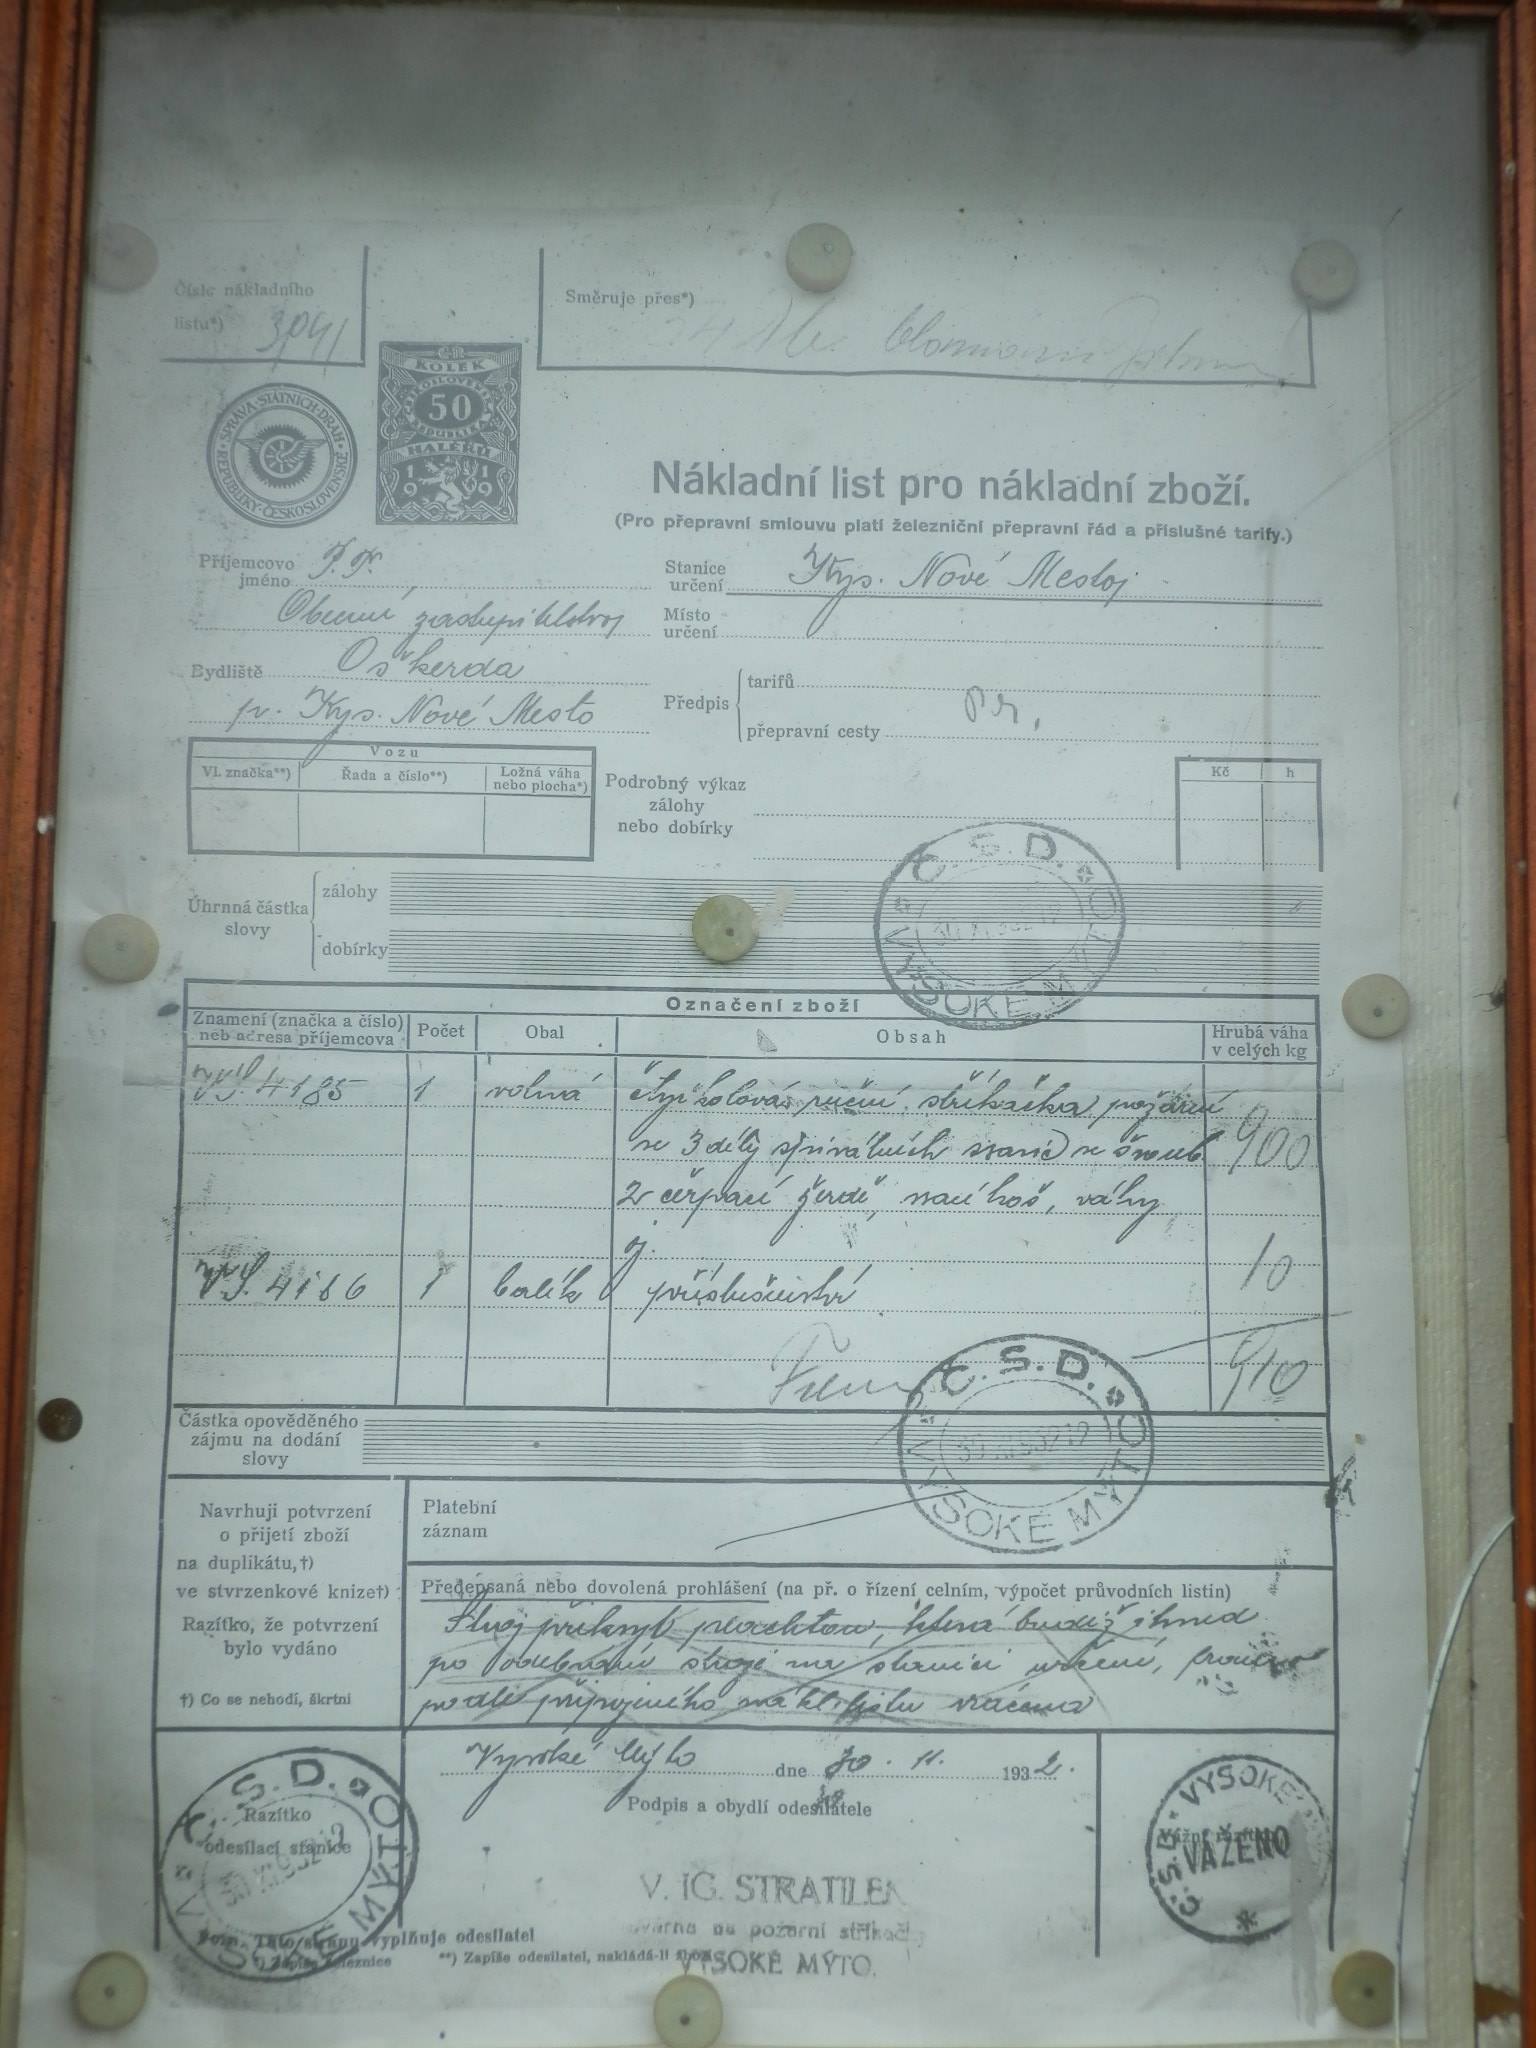 Číslo nákladního
listu*) 3041
Směruje přes*)
KOLEK
50
HALÉŘŮ
1919
SPRÁVA STÁTNÍCH DRAH
REPUBLIKY ČESKOSLOVENSKÉ
Nákladní list pro nákladní zboží.
(Pro přepravní smlouvu platí železniční přepravní řád a příslušné tarify.)
Příjemcovo
jméno
Obecní zastupitelstvo
Bydliště Oškerda
p. Kys. Nové Mesto
Stanice
určení Kys. Nové Mesto
Místo
určení
Předpis
tarifů
přepravní cesty
Vozu
Vl. značka**) Řada a číslo**) Ložná váha
nebo plocha*)
Podrobný výkaz
zálohy
nebo dobírky
Kč h
Úhrnná částka
slovy
zálohy
dobírky
Č.S.D. VYSOKÉ MÝTO
Označení zboží
Znamení (značka a číslo)
neb adresa příjemcova
Počet Obal Obsah Hrubá váha
v celých kg
V.S. 4185 1 volná čtyřkolová ruční stříkačka požární
se 3 díly spirálních ssavic se šroub. 900
2 čerpací žerdě, ssací koš, váhy
V.S. 4186 1 balík příslušenství 10
910
Č.S.D. VYSOKÉ MÝTO
Částka opověděného
zájmu na dodání
slovy
Navrhuji potvrzení
o přijetí zboží
na duplikátu,†)
ve stvrzenkové knize†)
Razítko, že potvrzení
bylo vydáno
†) Co se nehodí, škrtni
Platební
záznam
Předepsaná nebo dovolená prohlášení (na př. o řízení celním, výpočet průvodních listin)
Stroj přikryt plachtou, která budiž ihned
po odebrání stroje na stanici určení,
podle připojeného nákl. listu vrácena
Vysoké Mýto dne 30. 11. 1932.
Podpis a obydlí odesílatele
Razítko
odesílací stanice
Č.S.D. VYSOKÉ MÝTO
V. IG. STRATILE
na požární stříkač
VYSOKÉ MÝTO.
Č.S.D. VYSOKÉ
VÁŽENO
Pozn. Tuto stranu vyplňuje odesílatel
*) Zapíše železnice **) Zapíše odesílatel, nakládá-li zboží